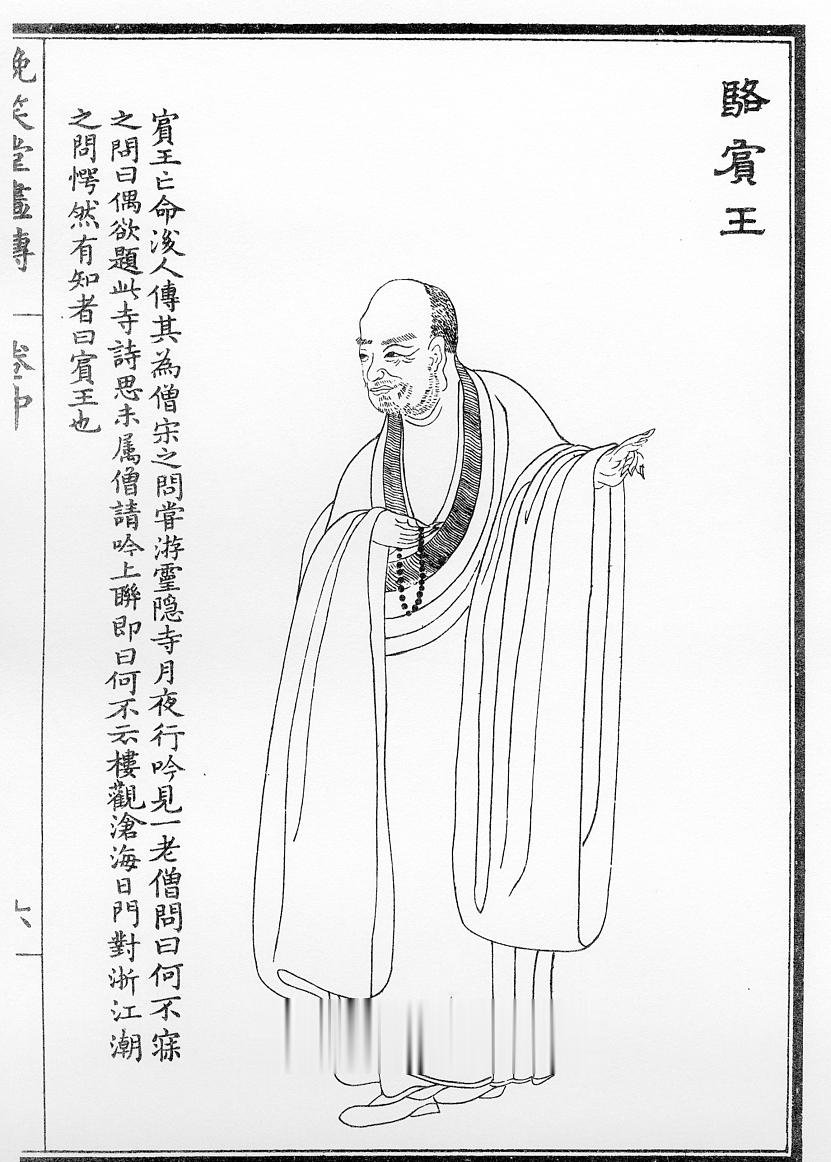 駱賓王
賓王亡命後人傳其為僧宋之問嘗游靈隐寺月夜行吟見一老僧問曰何不寐
之問曰偶欲題此寺詩思未属僧請吟上聯即曰何不云樓觀滄海日門對浙江潮
之問愕然有知者曰賓王也
晚笑堂畫傳
卷中
六